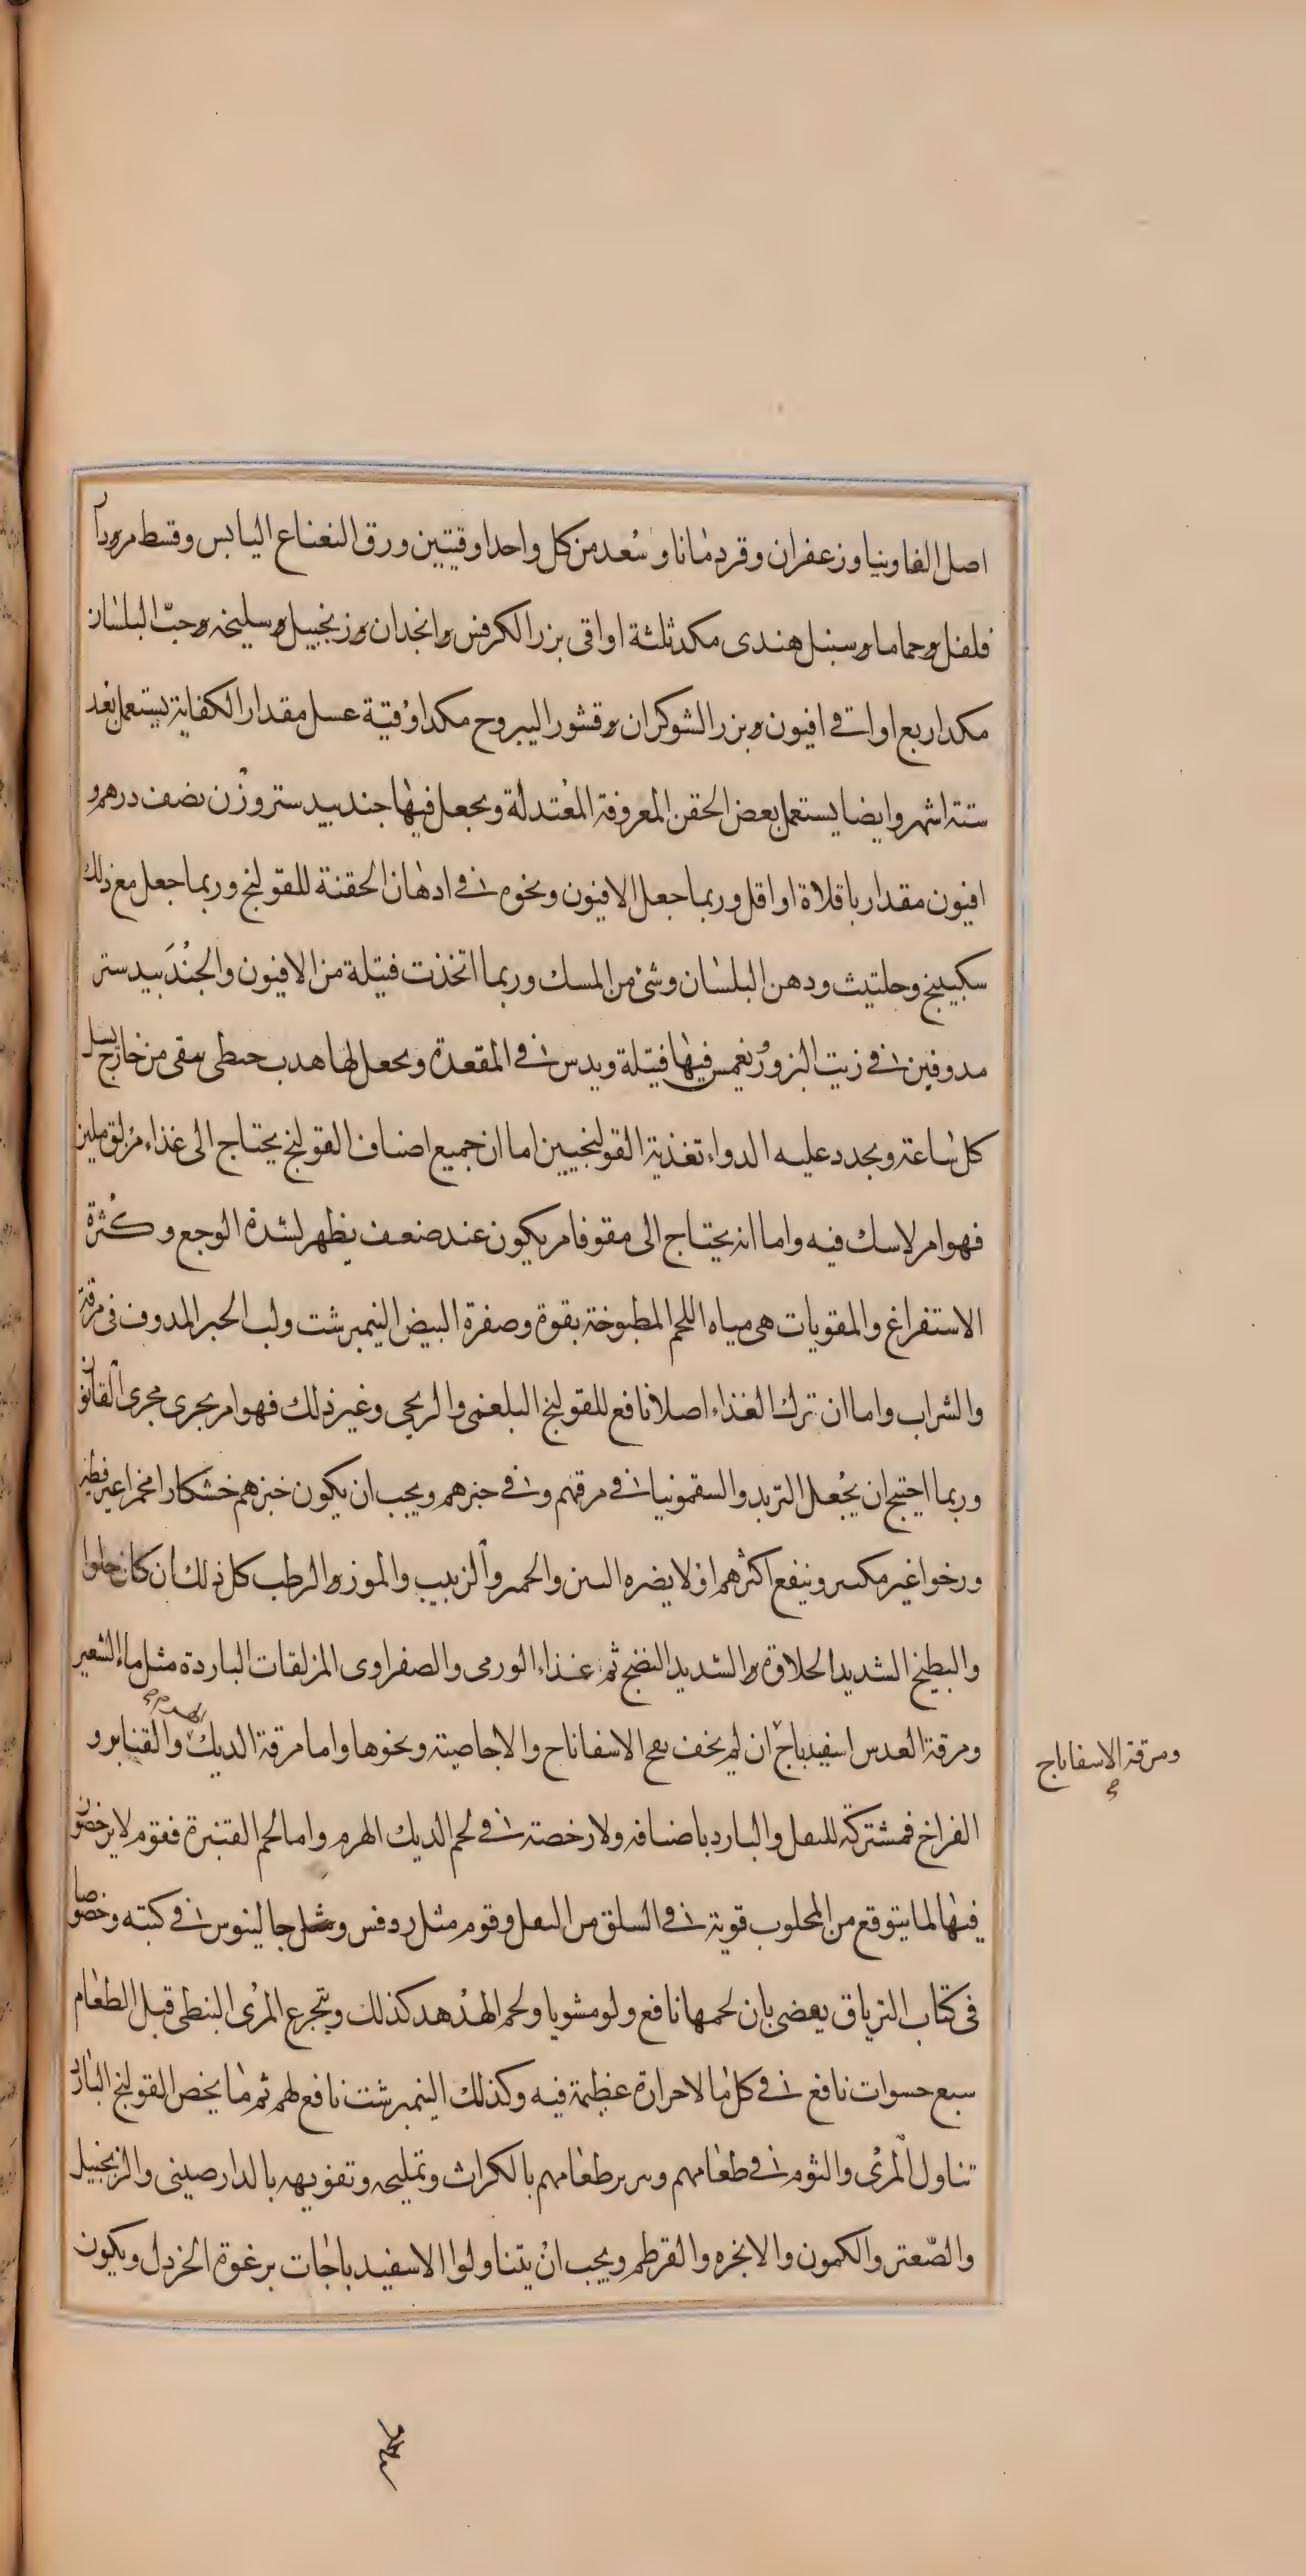 اصل الفاوينيا وزعفران وقردمانا وسعد من كل واحد اوقيتين ورق النعناع اليابس وقسط مر ودار
فلفل وحماما وسنبل هندى مكد ثلثة اواقى بزر الكرفس وانجدان وزنجبيل وسليخه وحبّ البلسان
مكد اربع اواقى افيون وبزر الشوكران وقشور اليبروح مكد اوقية عسل مقدار الكفاية يستعمل بعد
ستة اشهر وايضا يستعمل بعض الحقن المعروفة المعتدلة ويجعل فيها جندبيدستر وزن نصف درهم و
افيون مقدار باقلاة او اقل وربما جعل الافيون ونحوه فى ادهان الحقنة للقولنج وربما جعل مع ذلك
سكبينج وحلتيث ودهن البلسان وشئ من المسك وربما اتخذت فتيلة من الافيون والجندبيدستر
مدوفين فى زيت البزور يغمس فيها فتيلة ويدس فى المقعدة ويجعل لها هدب خيطى يبقى من خارج يسل
كل ساعة ويجدد عليه الدواء تغذية القولنجيين اما ان جميع اصناف القولنج يحتاج الى غذاء مزلق ملين
فهو امر لا سك فيه واما انه يحتاج الى مقو فامر يكون عند ضعف يظهر لشدة الوجع وكثرة
الاستفراغ والمقويات هى مياه اللحم المطبوخة بقوة وصفرة البيض النيمبرشت ولب الخبر المدوف فى مرقة
والشراب واما ان ترك الغذاء اصلا نافع للقولنج البلغمى والريحى وغير ذلك فهو امر يجرى مجرى القانون
وربما احتيج ان يجعل التربد والسقمونيا فى مرقهم وفى خبزهم ويجب ان يكون خبزهم خشكارا مخمرا غير فطير
ورخوا غير مكسر وينفع اكثرهم او لا يضره التين والخمر والزبيب والموز والرطب كل ذلك ان كان حلوا
والبطيخ الشديد الحلاوة والشديد النضج ثم غذاء الورمى والصفراوى المزلقات الباردة مثل ماء الشعير
ومرقة العدس اسفيدباج ان لم يخف نفخ الاسفاناح والاجاصية ونحوها واما مرقة الديك الهرم والقنابر و
ومرقة الاسفاناج
الفراخ فمشتركة للثفل والبارد باصنافه ولا رخصة فى لحم الديك الهرم واما لحم القنبرة فقوم لا يرخصون
فيها لما يتوقع من المحلوب قوية فى السلق من الثفل وقوم مثل روفس ومثل جالينوس فى كتبه وخصوصا
فى كتاب الترياق يقضى بان لحمها نافع ولو مشويا ولحم الهدهد كذلك ويتجرع المرى النبطى قبل الطعام
سبع حسوات نافع فى كل ما لا حرارة عظيمة فيه وكذلك النيمبرشت نافع لهم ثم ما يخص القولنج البارد
تناول المرى والثوم فى طعامهم وبزر طعامهم بالكراث وتمليحه وتفويهه بالدارصينى والزنجبيل
والصّعتر والكمون والانجره والقرطم ويجب ان يتناولوا الاسفيدباجات برغوة الخردل ويكون